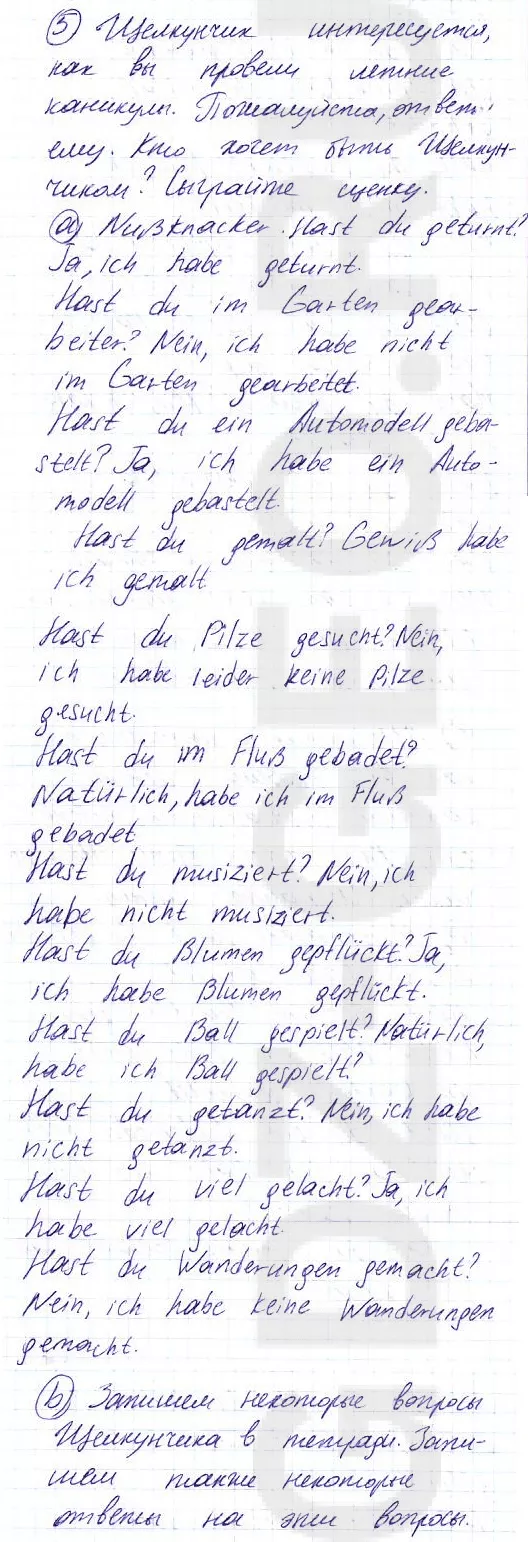 5 Щелкунчик интересуется,
как вы провели летние
каникулы. Пожалуйста, ответь
ему. Кто хочет быть Щелкун-
чиком? Сыграйте сценку.
a) Nußknacker. Hast du geturnt?
Ja, ich habe geturnt.
Hast du im Garten gear-
beiter? Nein, ich habe nicht
im Garten gearbeitet.
Hast du ein Automodell geba-
stelt? Ja, ich habe ein Auto-
modell gebastelt.
Hast du gemalt? Gewiß habe
ich gemalt
Hast du Pilze gesucht? Nein,
ich habe leider keine Pilze
gesucht.
Hast du im Fluß gebadet?
Natürlich, habe ich im Fluß
gebadet
Hast du musiziert? Nein, ich
habe nicht musiziert.
Hast du Blumen gepflückt? Ja,
ich habe Blumen gepflückt.
Hast du Ball gespielt? Natürlich,
habe ich Ball gespielt?
Hast du getanzt? Nein, ich habe
nicht getanzt.
Hast du viel gelacht? Ja, ich
habe viel gelacht.
Hast du Wanderungen gemacht?
Nein, ich habe keine Wanderungen
gemacht.
b) Запишем некоторые вопросы
Щелкунчика в тетради. Запи-
шем также некоторые
ответы на эти вопросы.
GDZ-GEO.RU